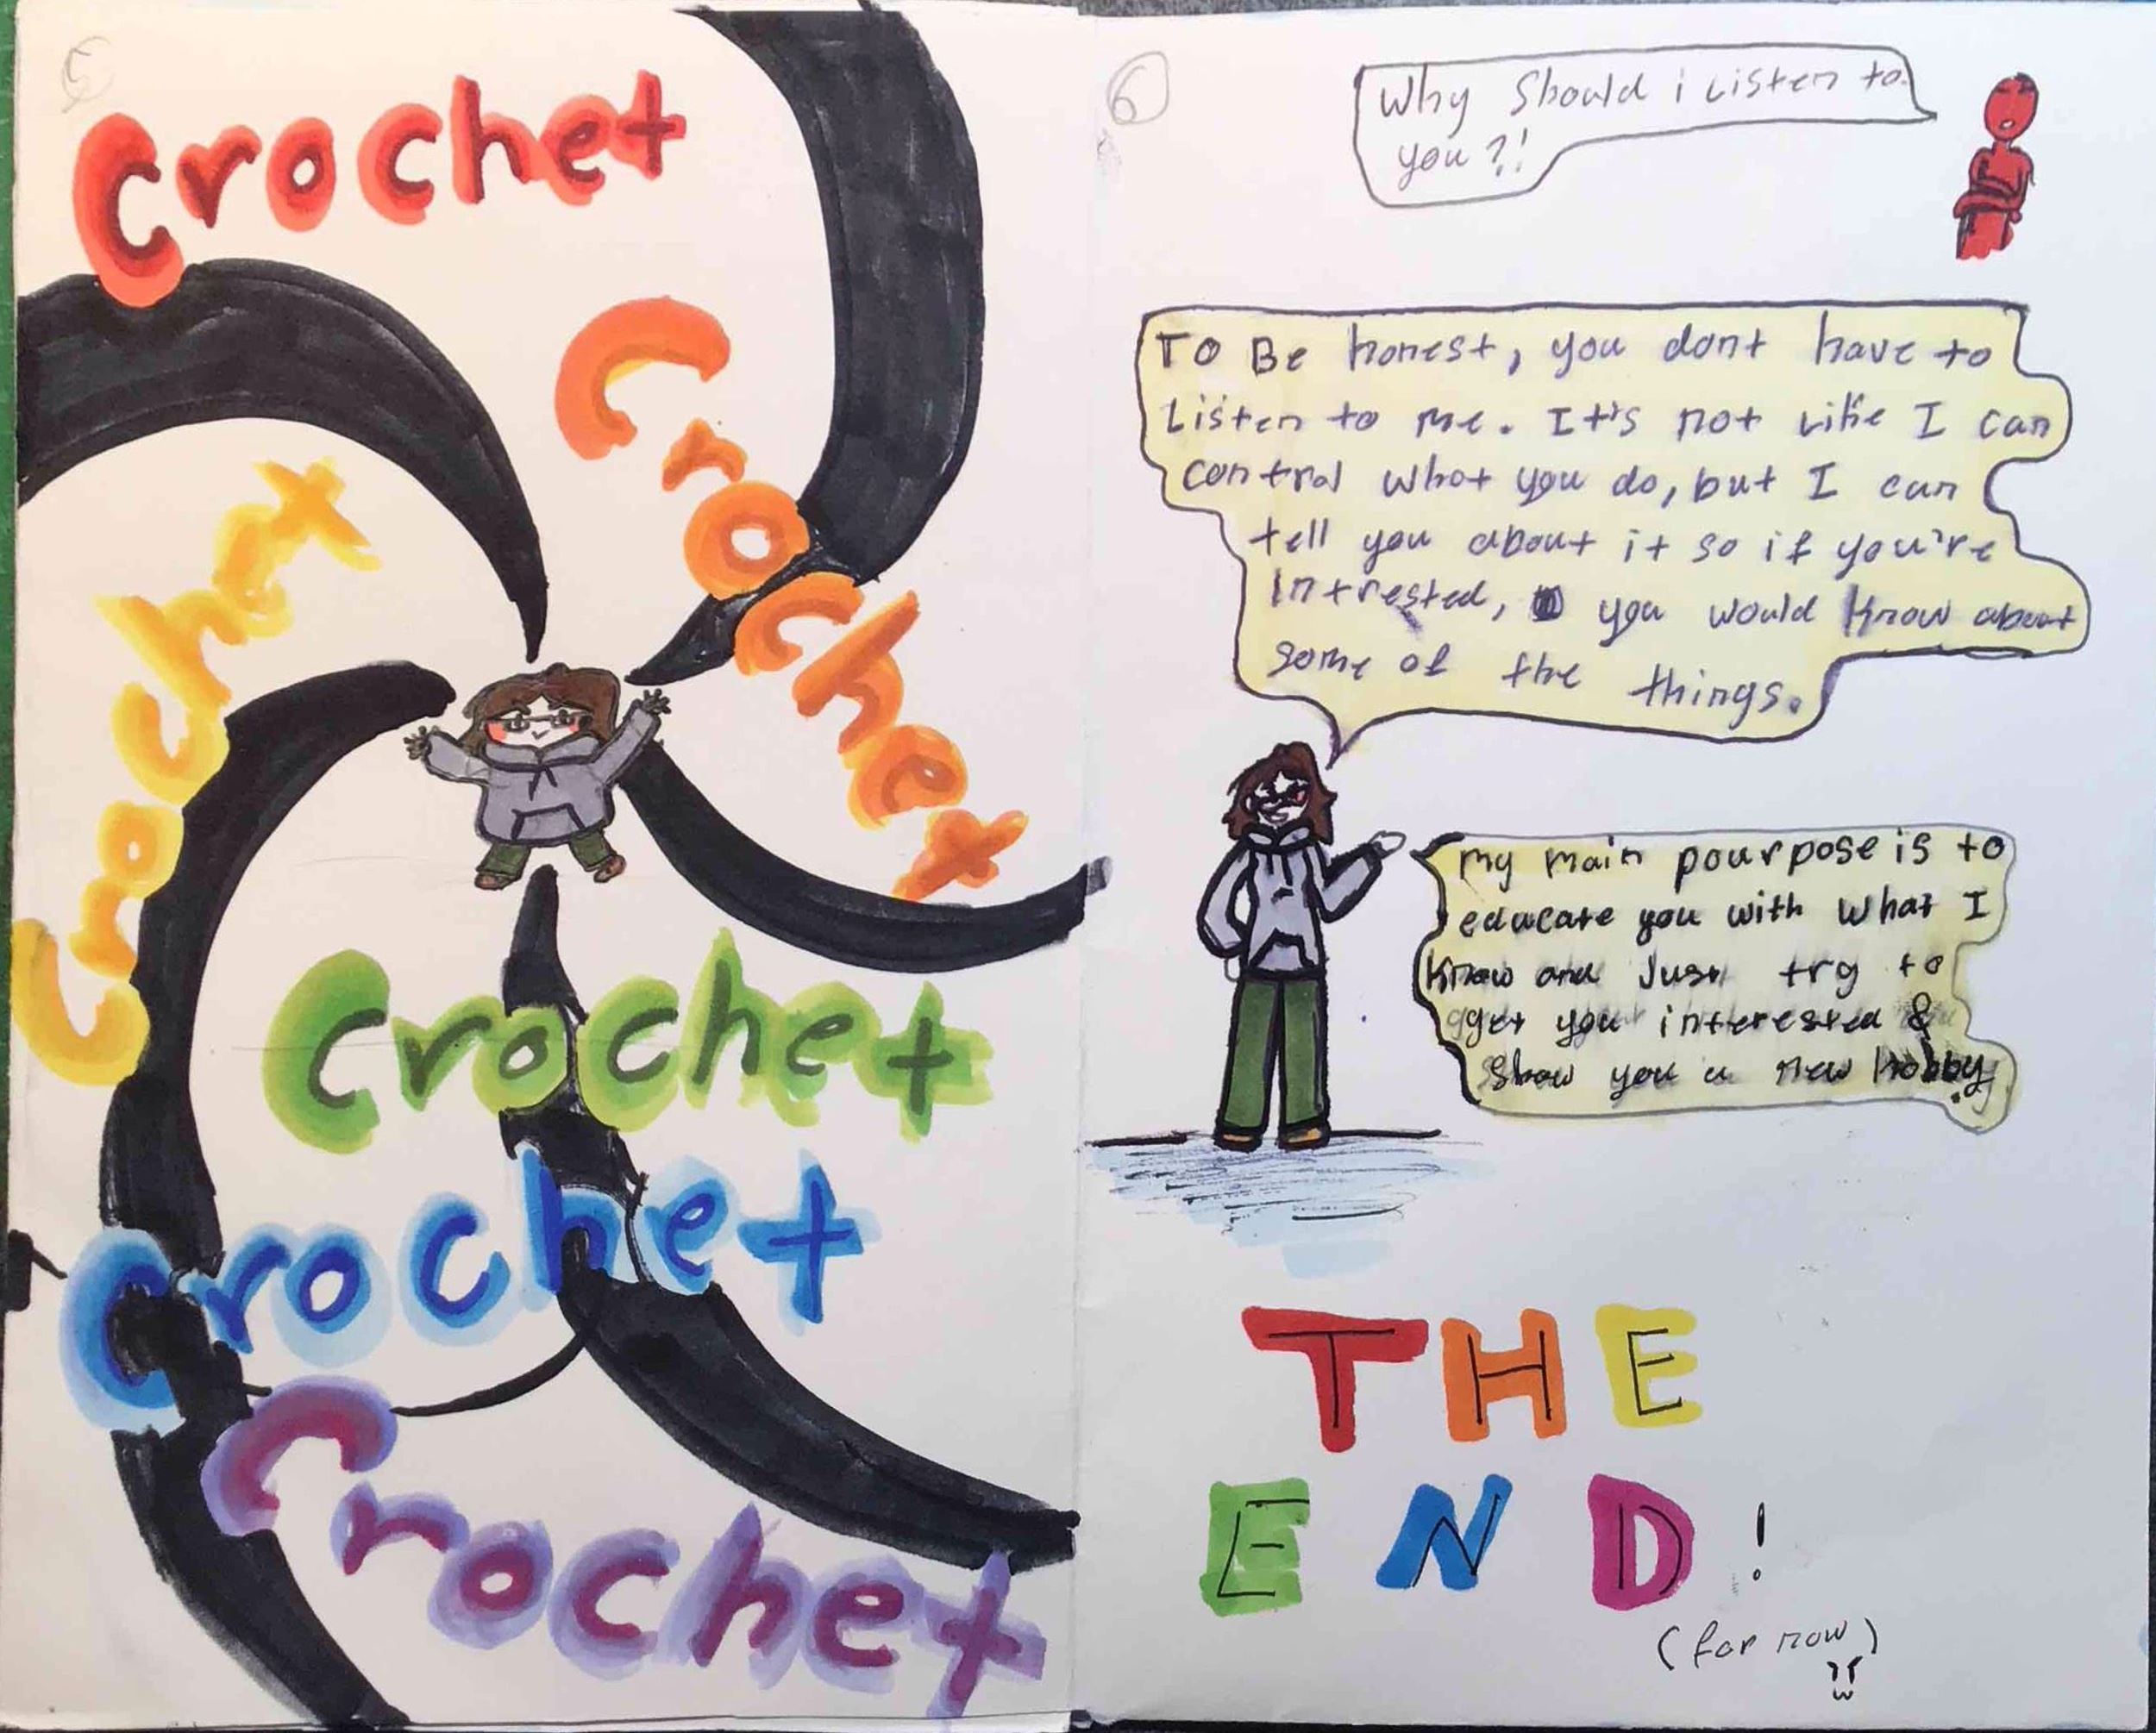 5
Crochet
Crochet
Crochet
Crochet
Crochet
Crochet
6
Why Should i Listen to
you?!
TO Be honest, you dont have to
Listen to me. It's not like I can
control what you do, but I can
tell you about it so if you're
Intrested, you would know about
some of the things.
my main pourpose is to
educate you with what I
know and Just try to
get you interested &
Show you a new hobby.
THE
END!
(for now)